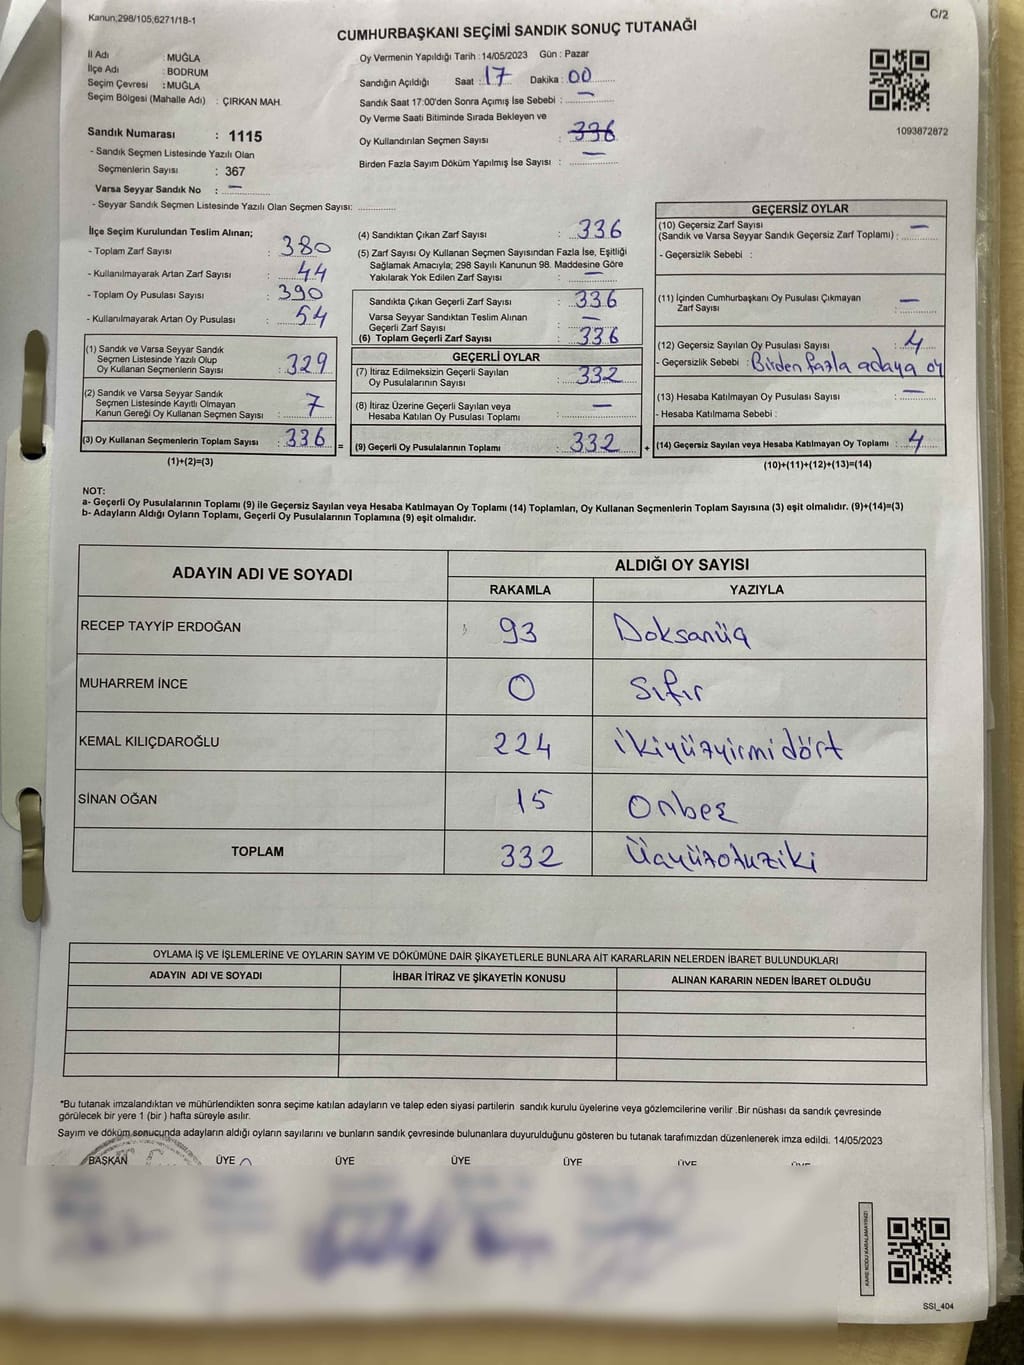 Kanun,298/105,6271/18-1
C/2
CUMHURBAŞKANI SEÇİMİ SANDIK SONUÇ TUTANAĞI
İl Adı : MUĞLA
İlçe Adı : BODRUM
Seçim Çevresi : MUĞLA
Seçim Bölgesi (Mahalle Adı) : ÇIRKAN MAH.
Sandık Numarası : 1115
- Sandık Seçmen Listesinde Yazılı Olan
Seçmenlerin Sayısı : 367
Varsa Seyyar Sandık No : —
- Seyyar Sandık Seçmen Listesinde Yazılı Olan Seçmen Sayısı: ............
Oy Vermenin Yapıldığı Tarih : 14/05/2023 Gün : Pazar
Sandığın Açıldığı Saat : 17 Dakika : 00
Sandık Saat 17:00'den Sonra Açımış İse Sebebi : —
Oy Verme Saati Bitiminde Sırada Bekleyen ve
Oy Kullandırılan Seçmen Sayısı : 336
Birden Fazla Sayım Döküm Yapılmış İse Sayısı : —
1093872872
İlçe Seçim Kurulundan Teslim Alınan;
- Toplam Zarf Sayısı : 380
- Kullanılmayarak Artan Zarf Sayısı : 44
- Toplam Oy Pusulası Sayısı : 390
- Kullanılmayarak Artan Oy Pusulası : 54
(1) Sandık ve Varsa Seyyar Sandık
Seçmen Listesinde Yazılı Olup
Oy Kullanan Seçmenlerin Sayısı : 329
(2) Sandık ve Varsa Seyyar Sandık
Seçmen Listesinde Kayıtlı Olmayan
Kanun Gereği Oy Kullanan Seçmen Sayısı : 7
(3) Oy Kullanan Seçmenlerin Toplam Sayısı : 336 =
(1)+(2)=(3)
(4) Sandıktan Çıkan Zarf Sayısı : 336
(5) Zarf Sayısı Oy Kullanan Seçmen Sayısından Fazla İse, Eşitliği
Sağlamak Amacıyla; 298 Sayılı Kanunun 98. Maddesine Göre
Yakılarak Yok Edilen Zarf Sayısı : —
Sandıkta Çıkan Geçerli Zarf Sayısı : 336
Varsa Seyyar Sandıktan Teslim Alınan
Geçerli Zarf Sayısı : —
(6) Toplam Geçerli Zarf Sayısı : 336
GEÇERLİ OYLAR
(7) İtiraz Edilmeksizin Geçerli Sayılan
Oy Pusulalarının Sayısı : 332
(8) İtiraz Üzerine Geçerli Sayılan veya
Hesaba Katılan Oy Pusulası Toplamı : —
(9) Geçerli Oy Pusulalarının Toplamı : 332 +
GEÇERSİZ OYLAR
(10) Geçersiz Zarf Sayısı
(Sandık ve Varsa Seyyar Sandık Geçersiz Zarf Toplamı) : —
- Geçersizlik Sebebi :
(11) İçinden Cumhurbaşkanı Oy Pusulası Çıkmayan
Zarf Sayısı : —
(12) Geçersiz Sayılan Oy Pusulası Sayısı : 4
- Geçersizlik Sebebi : Birden fazla adaya oy
(13) Hesaba Katılmayan Oy Pusulası Sayısı : —
- Hesaba Katılmama Sebebi :
(14) Geçersiz Sayılan veya Hesaba Katılmayan Oy Toplamı : 4
(10)+(11)+(12)+(13)=(14)
NOT:
a- Geçerli Oy Pusulalarının Toplamı (9) ile Geçersiz Sayılan veya Hesaba Katılmayan Oy Toplamı (14) Toplamları, Oy Kullanan Seçmenlerin Toplam Sayısına (3) eşit olmalıdır. (9)+(14)=(3)
b- Adayların Aldığı Oyların Toplamı, Geçerli Oy Pusulalarının Toplamına (9) eşit olmalıdır.
ADAYIN ADI VE SOYADI ALDIĞI OY SAYISI
RAKAMLA YAZIYLA
RECEP TAYYİP ERDOĞAN 93 Doksanüç
MUHARREM İNCE 0 Sıfır
KEMAL KILIÇDAROĞLU 224 ikiyüzyirmi dört
SİNAN OĞAN 15 Onbeş
TOPLAM 332 Üçyüzotuziki
OYLAMA İŞ VE İŞLEMLERİNE VE OYLARIN SAYIM VE DÖKÜMÜNE DAİR ŞİKAYETLERLE BUNLARA AİT KARARLARIN NELERDEN İBARET BULUNDUKLARI
ADAYIN ADI VE SOYADI İHBAR İTİRAZ VE ŞİKAYETİN KONUSU ALINAN KARARIN NEDEN İBARET OLDUĞU
*Bu tutanak imzalandıktan ve mühürlendikten sonra seçime katılan adayların ve talep eden siyasi partilerin sandık kurulu üyelerine veya gözlemcilerine verilir .Bir nüshası da sandık çevresinde
görülecek bir yere 1 (bir ) hafta süreyle asılır.
Sayım ve döküm sonucunda adayların aldığı oyların sayılarını ve bunların sandık çevresinde bulunanlara duyurulduğunu gösteren bu tutanak tarafımızdan düzenlenerek imza edildi. 14/05/2023
BAŞKAN ÜYE ÜYE ÜYE ÜYE ÜYE
KARE KODU KARALAMAYINIZ!
SSI_404